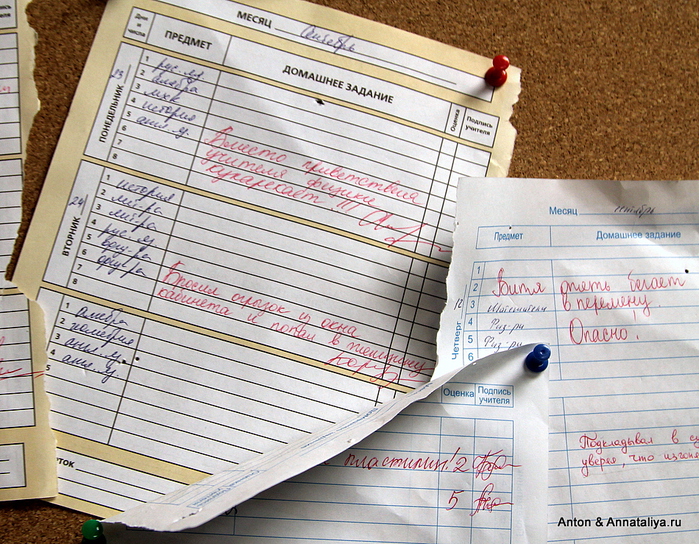 МЕСЯЦ Сентябрь
Дни и числа
ПРЕДМЕТ
ДОМАШНЕЕ ЗАДАНИЕ
Оценка
Подпись учителя
ПОНЕДЕЛЬНИК 23
1 рус. яз
2 алгебра
3 мхк
4 история
5 англ. яз
6
7
8
Вместо приветствия
учителя физики
кукарекает!!!
ВТОРНИК 24
1 история
2 лит-ра
3 лит-ра
4 рус. яз
5
6 физ-ра
7
8
Бросил огрызок из окна
кабинета и попал в женщину
1 алгебра
2 геометрия
3 англ. яз
4 англ. яз
5
Месяц октябрь
Предмет
Домашнее задание
Четверг 12
1
2
3 Математика
4 Физ-ра
5 Физ-ра
6
Витя опять бегает
в перемену.
Опасно!
Подкладывал в
уверяя, что
Оценка
Подпись учителя
пластилин! 2
5
Anton & Annataliya.ru